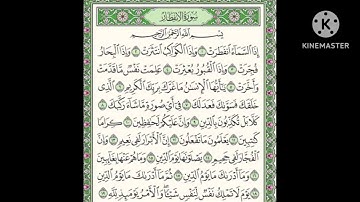 سُورَةُ الانفِطَارِ
KINEMASTER
بِسْمِ اللَّهِ الرَّحْمَٰنِ الرَّحِيمِ
إِذَا السَّمَاءُ انفَطَرَتْ ۝ وَإِذَا الْكَوَاكِبُ انتَثَرَتْ ۝ وَإِذَا الْبِحَارُ
فُجِّرَتْ ۝ وَإِذَا الْقُبُورُ بُعْثِرَتْ ۝ عَلِمَتْ نَفْسٌ مَّا قَدَّمَتْ
وَأَخَّرَتْ ۝ يَا أَيُّهَا الْإِنسَانُ مَا غَرَّكَ بِرَبِّكَ الْكَرِيمِ ۝ الَّذِي
خَلَقَكَ فَسَوَّاكَ فَعَدَلَكَ ۝ فِي أَيِّ صُورَةٍ مَّا شَاءَ رَكَّبَكَ ۝
كَلَّا بَلْ تُكَذِّبُونَ بِالدِّينِ ۝ وَإِنَّ عَلَيْكُمْ لَحَافِظِينَ ۝ كِرَامًا
كَاتِبِينَ ۝ يَعْلَمُونَ مَا تَفْعَلُونَ ۝ إِنَّ الْأَبْرَارَ لَفِي نَعِيمٍ ۝ وَإِنَّ
الْفُجَّارَ لَفِي جَحِيمٍ ۝ يَصْلَوْنَهَا يَوْمَ الدِّينِ ۝ وَمَا هُمْ عَنْهَا بِغَائِبِينَ
۝ وَمَا أَدْرَاكَ مَا يَوْمُ الدِّينِ ۝ ثُمَّ مَا أَدْرَاكَ مَا يَوْمُ الدِّينِ
۝ يَوْمَ لَا تَمْلِكُ نَفْسٌ لِّنَفْسٍ شَيْئًا وَالْأَمْرُ يَوْمَئِذٍ لِّلَّهِ ۝